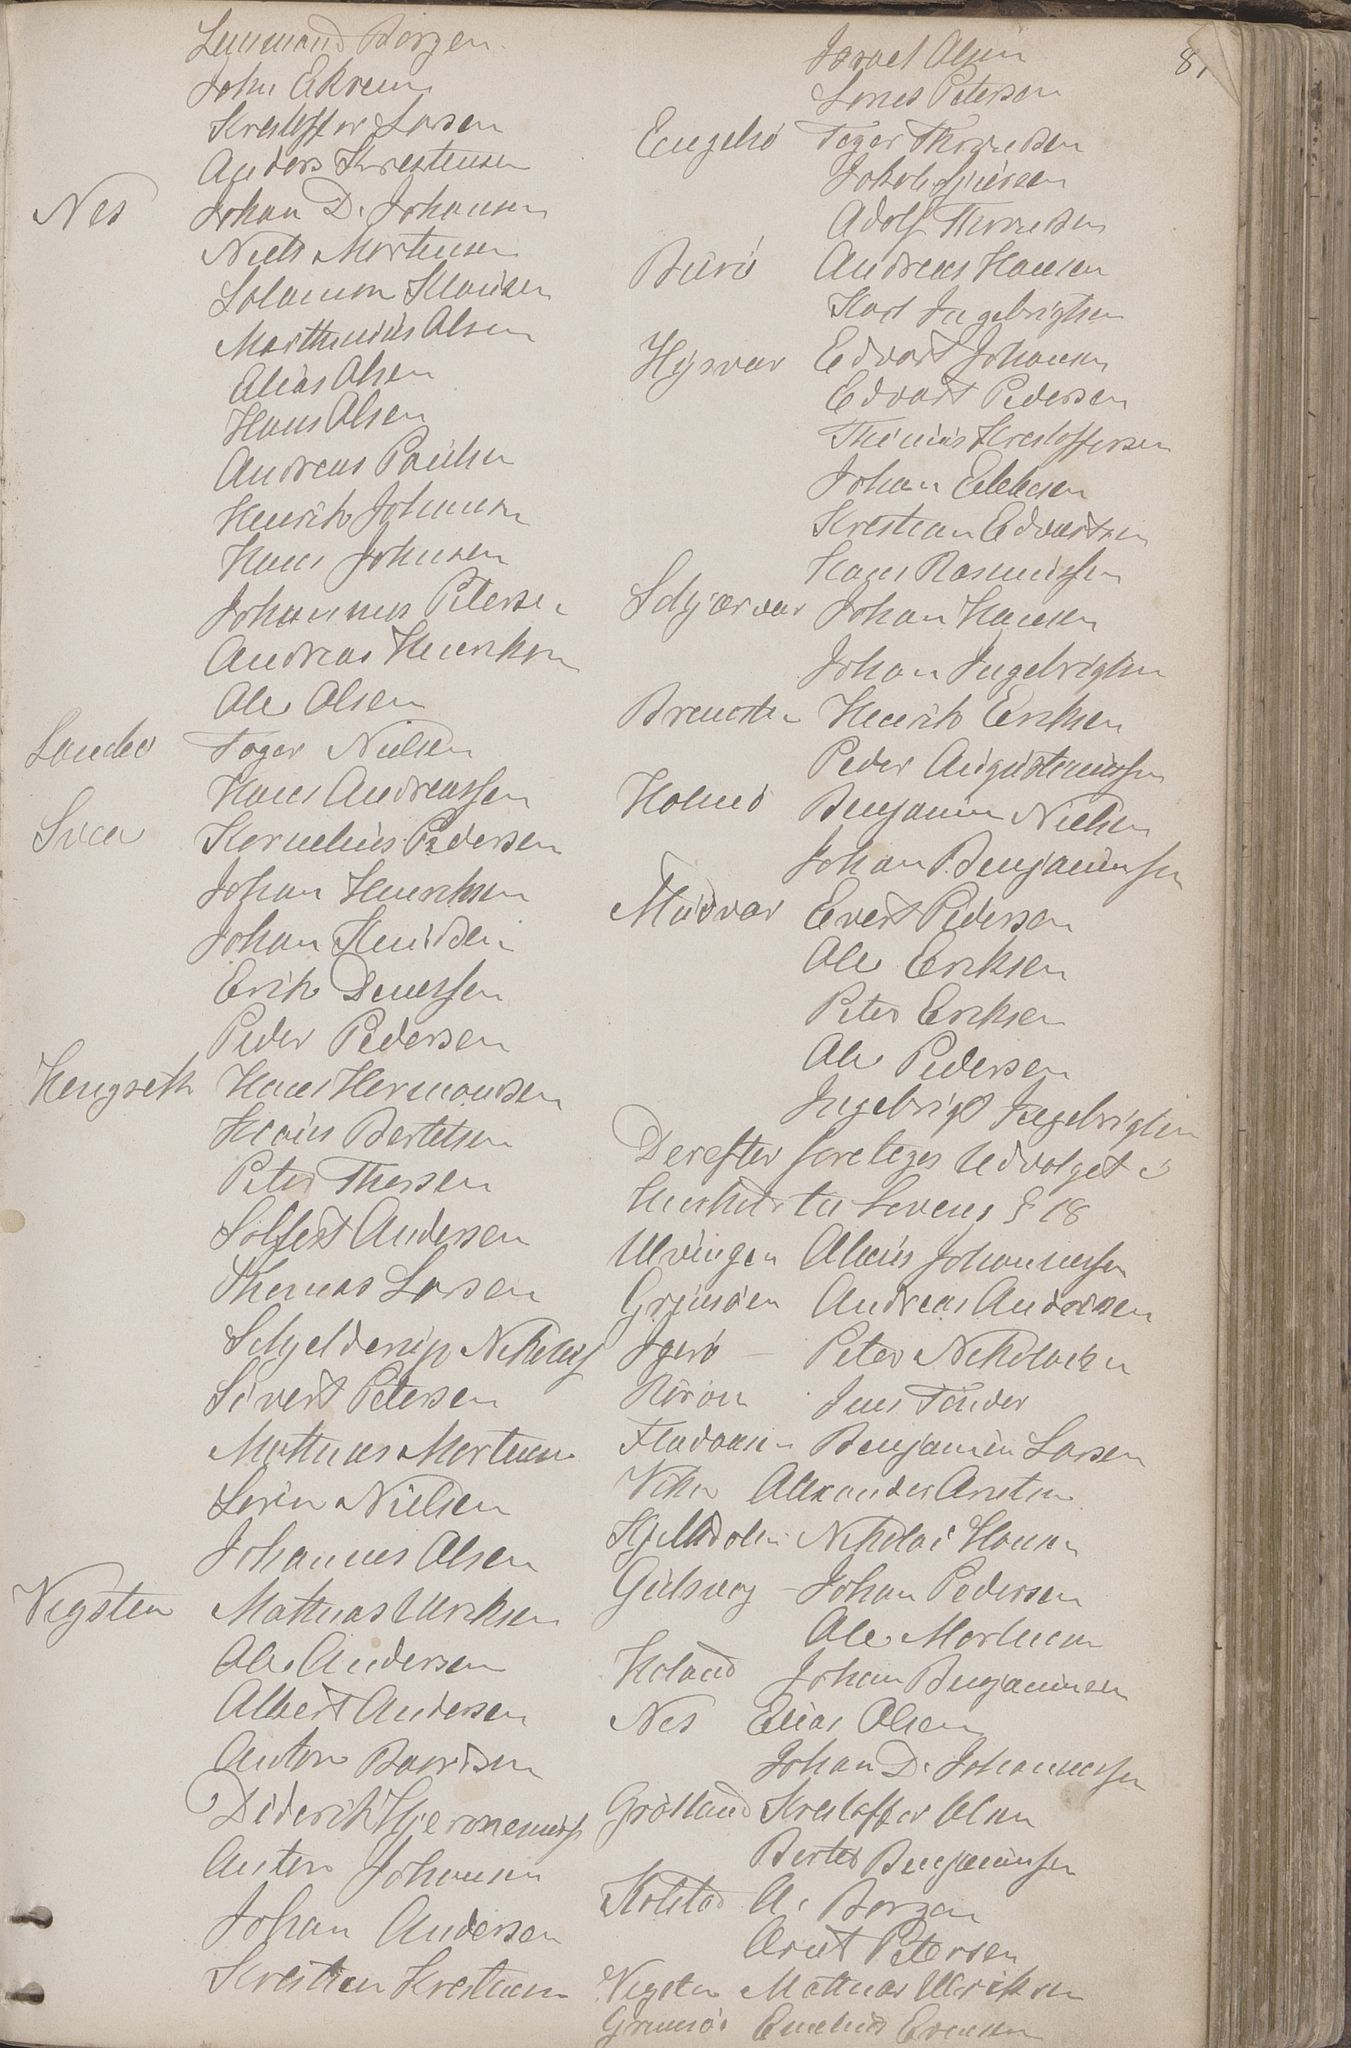 Lensmand Borgen
John Ekrem
Krestoffer Larsen
Anders Krestensen
Nes Johan D. Johansen
Niels Mortensen
Salamon Klausen
Marthinus Olsen
Alias Olsen
Hans Olsen
Andreas Paulsen
Henrik Johansen
Hans Johnsen
Johannes Petersen
Andreas Henriksen
Ole Olsen
Sandø Toger Nielsen
Hans Andreassen
Svea Kornelius Pedersen
Johan Henriksen
Johan Knudsen
Erik Danessen
Peder Pedersen
Hengseth Hans Hermansen
Klaus Bertelsen
Peter Thersen
Solfest Andersen
Thomas Larsen
Schjelderup Nikolais
Sivert Petersen
Mathias Mortensen
Sørin Nielsen
Johannes Olsen
Vegsten Mathias Ulriksen
Ole Andersen
Albert Andersen
Anton Baardsen
Diderik Hjeronemus
Anton Johansen
Johan Andersen
Krestian Krestiansen
81
Israel Olsen
Jones Peterson
Engelsø Toger Thorrudsen
Jakob
Adolf Thorrudsen
Burø Andreas Hansen
Karl Ingebrigtsen
Hysvær Edvart Johansen
Edvart Pedersen
Thinius Krestoffersen
Johan Ellefsen
Krestian Edvartsen
Hans Rasmussen
Schjærvær Johan Hansen
Johan Ingebrigtsen
Bremsten Henrik Eriksen
Peder Augustinussen
Holmø Benjamin Nielsen
Johan Benjaminsen
Mudvær Evert Pedersen
Ole Eriksen
Peter Eriksen
Ole Pedersen
Ingebrigt Ingebrigtsen
Derefter foretoges Udvalget i
Henhold til Lovens § 18
Ulvingen Alexius Johannessen
Grimsøen Andreas Andersen
Igerø - Peter Nikolaisen
Rørøen Jens Tønder
Fladøen Benjamin Larsen
Viken Alexander Arntsen
Nikolai Hansen
Gulsvaag - Johan Pedersen
Ole Mortensen
Holand Johan Benjaminsen
Nes Elias Olsen
Johan D. Johannessen
Grøtland Krestoffer Olsen
Berteo Benjaminsen
Kolstad A. Borgen
Arnt Petersen
Vegsten Mathias Ulriksen
Grimsøe Emelius Evensen